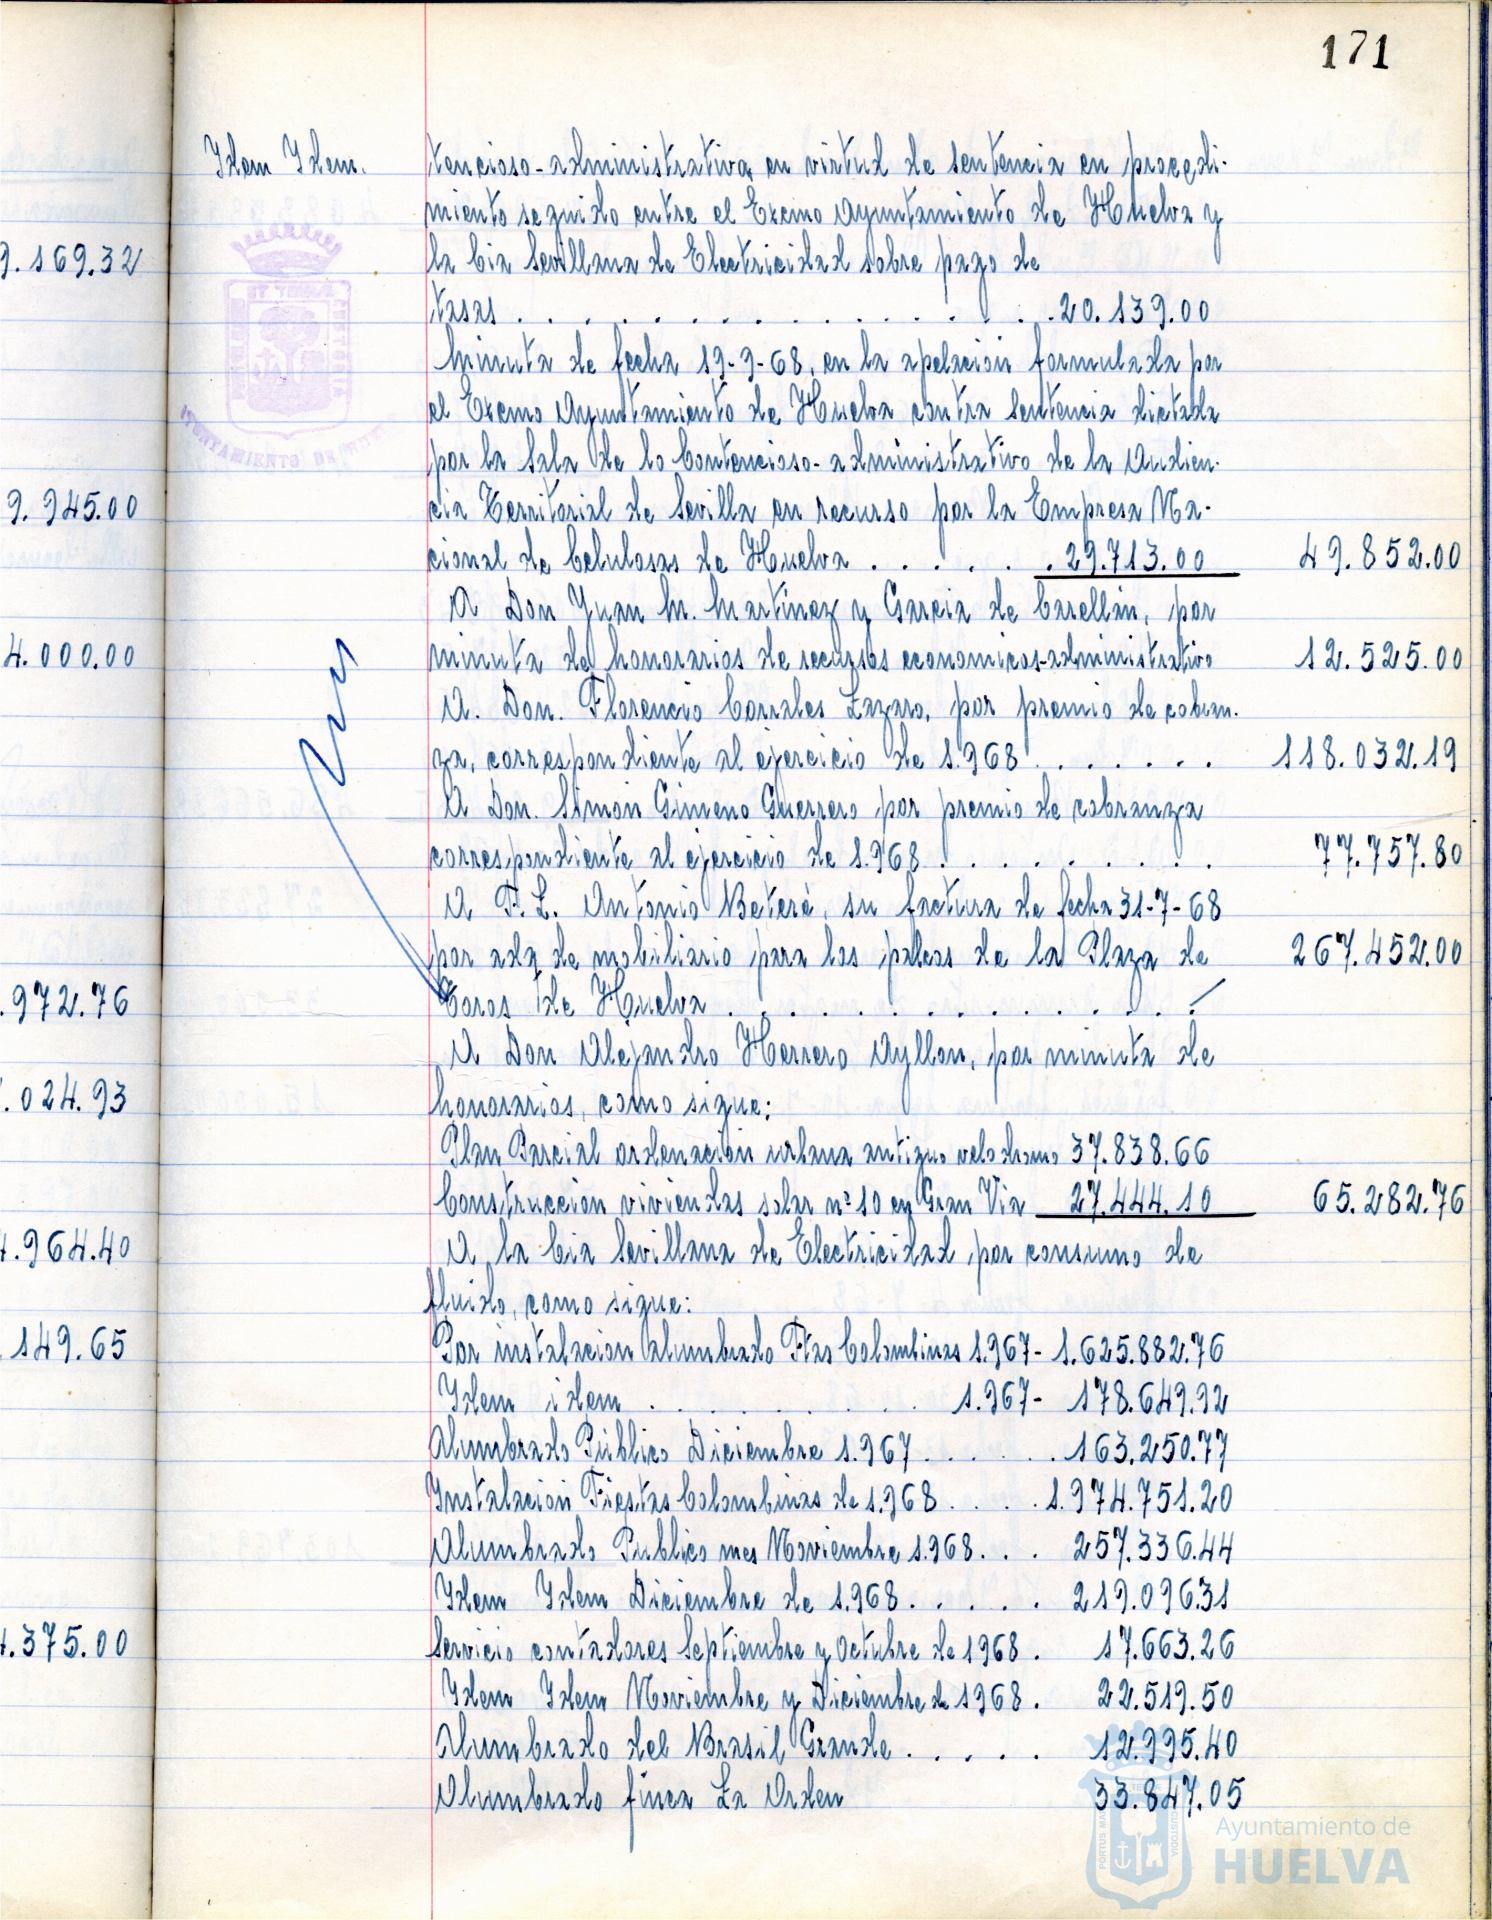 171
Idem Idem.
tencioso-administrativa en virtud de sentencia en procedi-
miento seguido entre el Excmo Ayuntamiento de Huelva y
9.169.32
la Cia Sevillana de Electricidad sobre pago de
tasas . . . . . . . . . . . . . . . . 20.139.00
Minuta de fecha 19-9-68, en la apelación formulada por
el Excmo Ayuntamiento de Huelva contra sentencia dictada
AYUNTAMIENTO DE HUELVA
por la Sala de lo Contencioso-administrativo de la Audien-
9.945.00
cia Territorial de Sevilla en recurso por la Empresa Na-
cional de Celulosas de Huelva . . . . . . 29.713.00 49.852.00
A Don Juan M. Martínez y Garcia de Carellán, por
4.000.00
minuta de honorarios de recursos economicos-administrativo 12.525.00
A. Don. Florencio Corrales Lazaro, por premio de cobran-
za, correspondiente al ejercicio de 1.968 . . . . . . 118.032.19
A Don. Simón Gimeno Guerrero por premio de cobranza
correspondiente al ejercicio de 1.968 . . . . . . . . . 77.757.80
A F.L. Antonio Beteré, su factura de fecha 31-7-68
por adq de mobiliario para los palcos de la Plaza de 267.452.00
.972.76
Toros de Huelva . . . . . . . . . . . . . . .
A Don Alejandro Herrero Ayllon, por minuta de
.024.93
honorarios, como sigue:
Plan Parcial ordenación urbana antiguo velodromo 37.838.66
Construccion viviendas solar nº 10 en Gran Via 27.444.10 65.282.76
4.964.40
A la Cia Sevillana de Electricidad, por consumo de
fluido, como sigue:
.149.65
Por instalacion alumbrado Ftas Colombinas 1.967- 1.625.882.76
Idem idem . . . . . . . . . 1.967- 178.649.92
Alumbrado Público Diciembre 1.967 . . . . . . 163.250.77
Instalacion Fiestas Colombinas de 1.968 . . . . 1.974.751.20
Alumbrado Publico mes Noviembre 1.968. . . 257.336.44
Idem Idem Diciembre de 1.968. . . . . 219.096.31
4.375.00
Servicio contadores Septiembre y Octubre de 1968 . 17.663.26
Idem Idem Noviembre y Diciembre de 1968. 22.519.50
Alumbrado del Brasil Grande . . . . . 12.995.40
Alumbrado finca La Orden 33.847.05
Ayuntamiento de
HUELVA